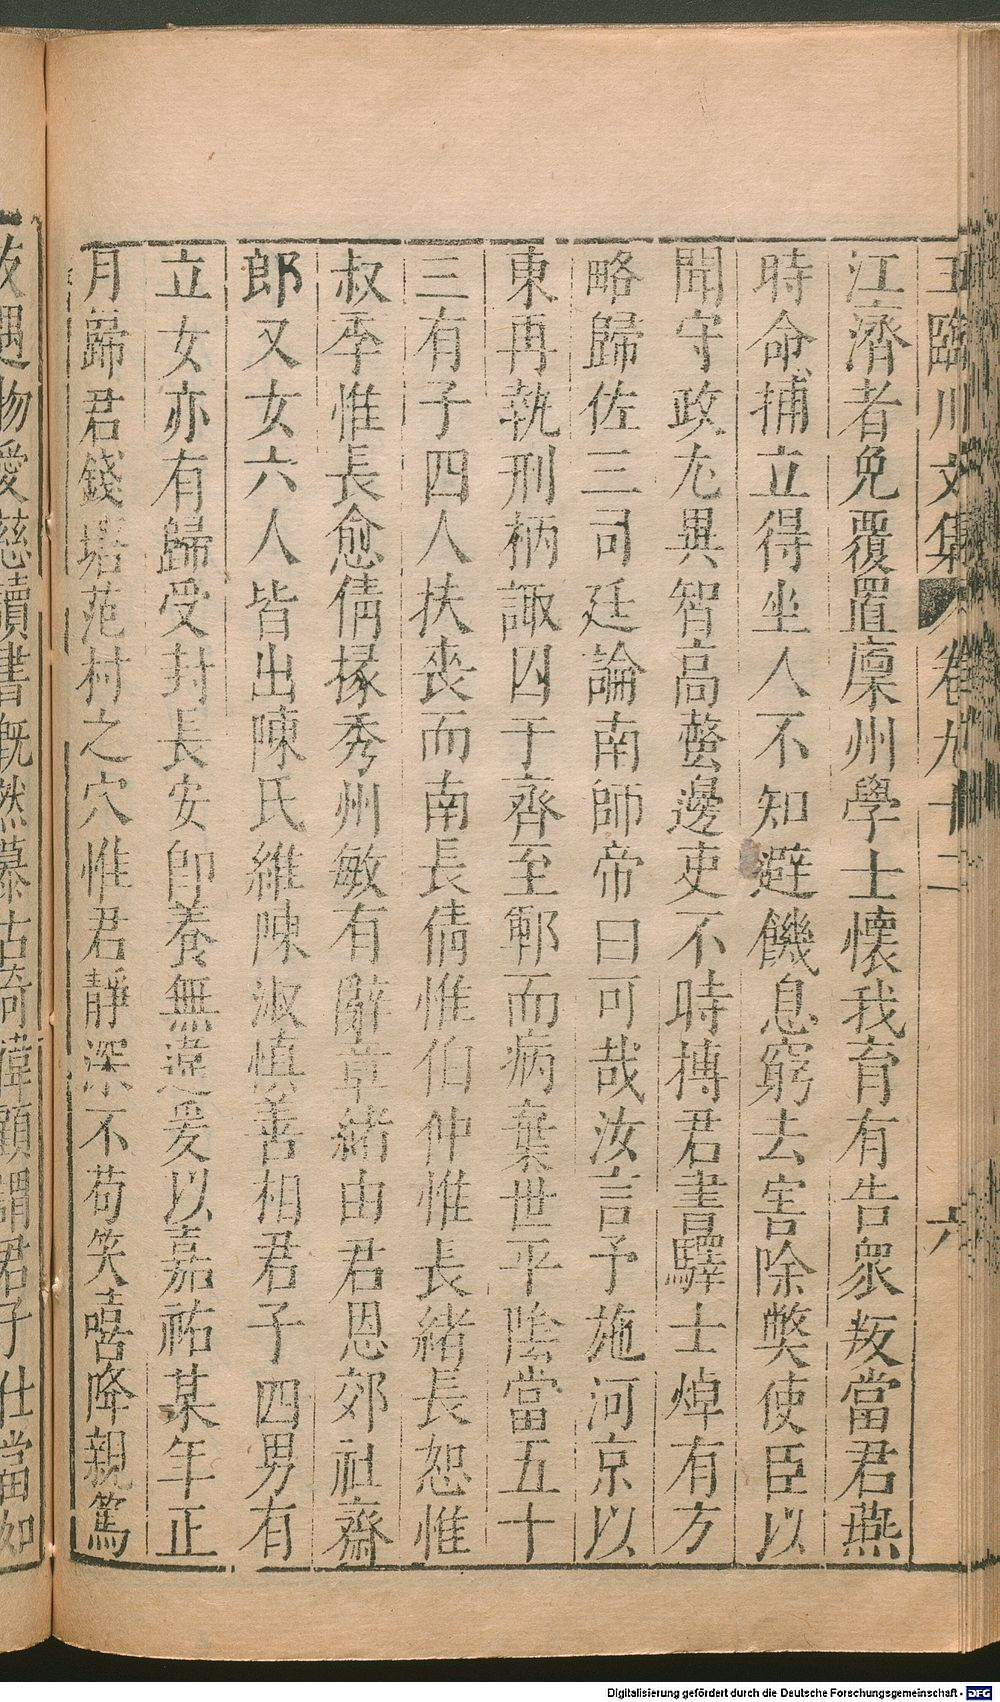 王臨川文集 卷九十二 六
江濟者免覆置廩州學士懷我育有告衆叛當君燕
時命捕立得坐人不知避饑息窮去害除獘使臣以
聞守政尤異智高螫邊吏不時摶君書驛士焯有方
略歸佐三司廷論南師帝曰可哉汝言予施河京以
東再執刑柄諏囚于齊至鄆而病棄世平陰當五十
三有子四人扶喪而南長倩惟伯仲惟長緒長恕惟
叔季惟長愈倩掾秀州敏有辭章緒由君恩郊社齋
郎又女六人皆出陳氏維陳淑慎善相君子四男有
立女亦有歸受封長安卽養無違爰以嘉祐某年正
月歸君錢塘范村之穴惟君靜深不苟笑嘻降親篤
友遇物愛慈讀書慨然慕古奇偉顧謂君子仕當如
Digitalisierung gefördert durch die Deutsche Forschungsgemeinschaft - DFG